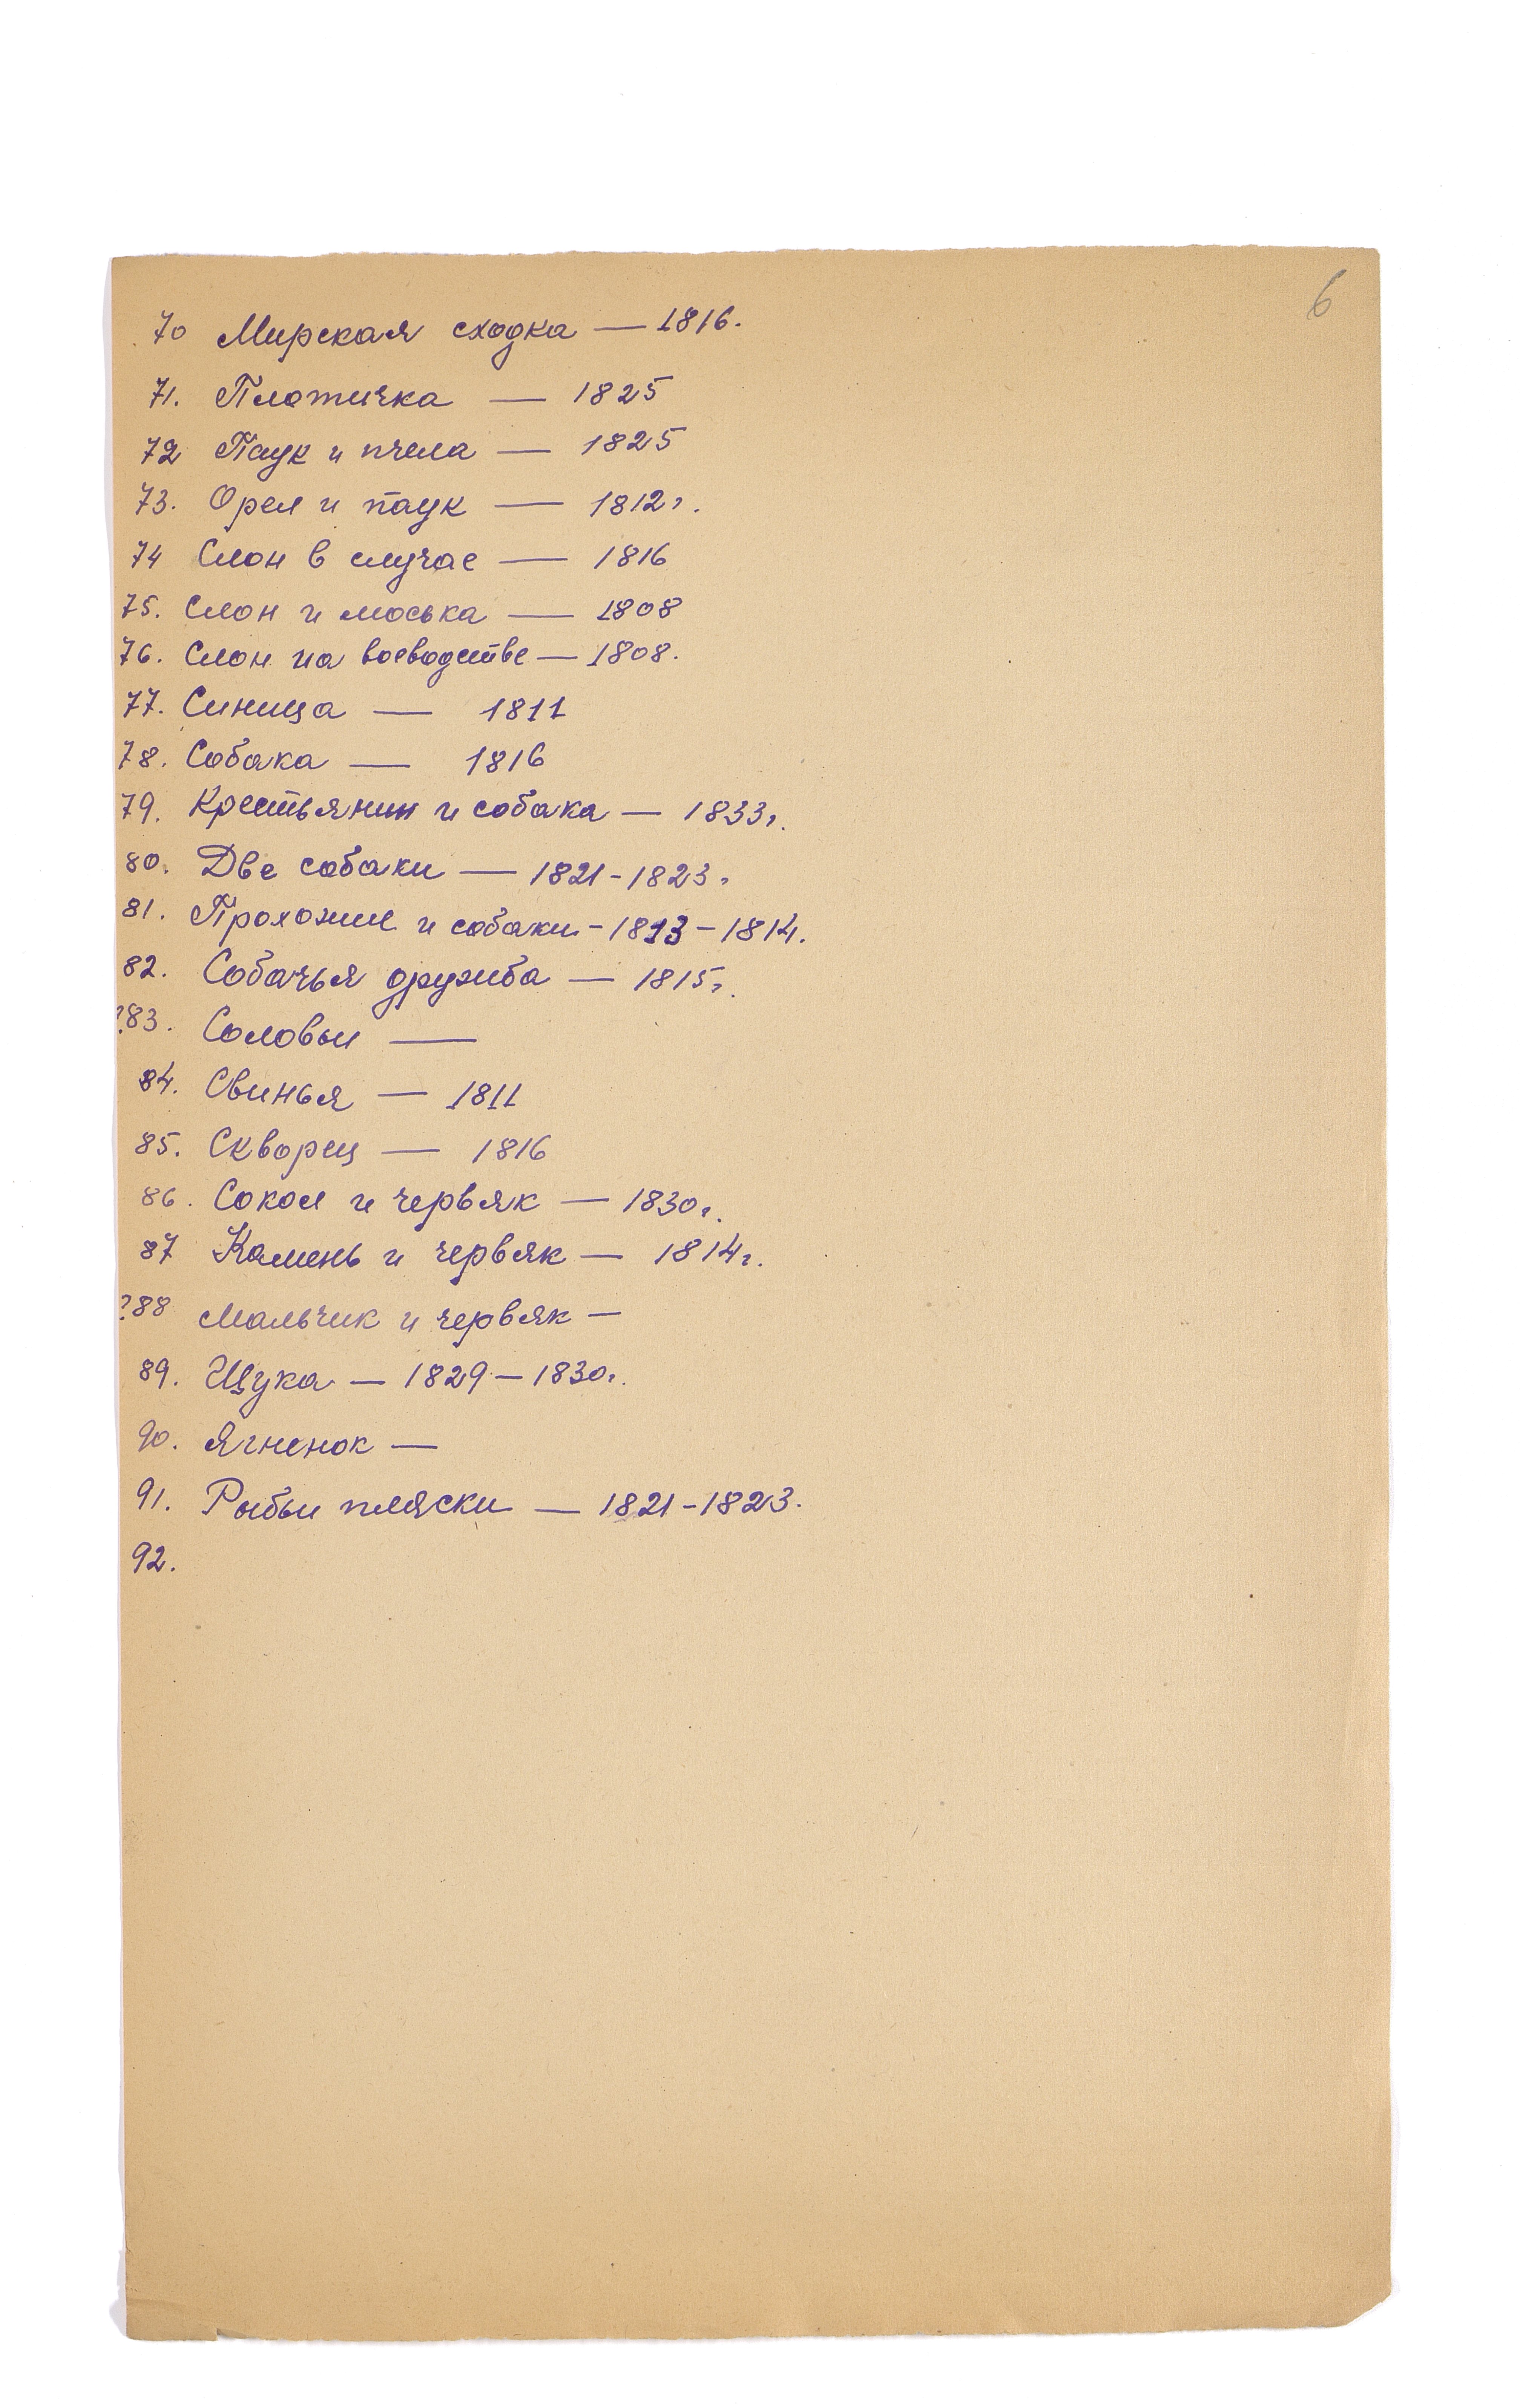 6
70 Мирская сходка — 1816.
71. Плотичка — 1825
72 Паук и пчела — 1825
73. Орел и паук — 1812г.
74 Слон в случае — 1816
75. Слон и моська — 1808
76. Слон на воеводстве — 1808.
77. Синица — 1811
78. Собака — 1816
79. Крестьянин и собака — 1833г.
80. Две собаки — 1821-1823г
81. Прохожие и собаки - 1813 - 1814.
82. Собачья дружба — 1815г.
?83. Соловьи —
84. Свинья — 1811
85. Скворец — 1816
86. Сокол и червяк — 1830г.
87 Камень и червяк — 1814г.
?88 Мальчик и червяк —
89. Щука — 1829 — 1830г.
90. Ягненок —
91. Рыбьи пляски — 1821-1823.
92.